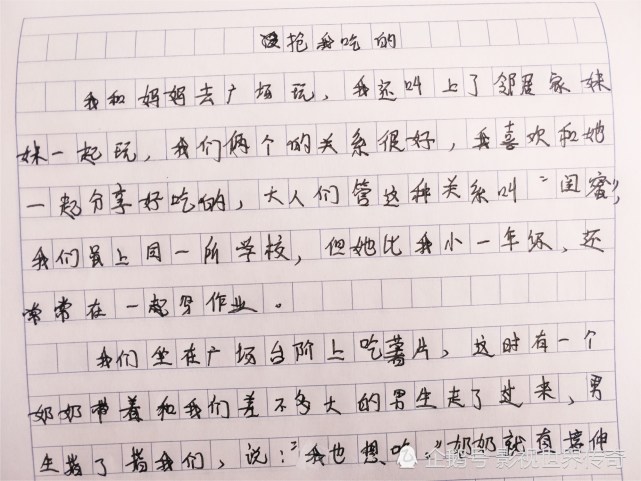 抢我吃的
我和妈妈去广场玩，我还叫上了邻居家妹
妹一起玩，我们俩个的关系很好，我喜欢和她
一起分享好吃的，大人们管这种关系叫“闺蜜”，
我们虽上同一所学校，但她比我小一年级，还
常常在一起写作业。
我们坐在广场台阶上吃薯片，这时有一个
奶奶带着和我们差不多大的男生走了过来，男
生指了指我们，说：“我也想吃。”奶奶就直接伸
企鹅号 影视世界传奇